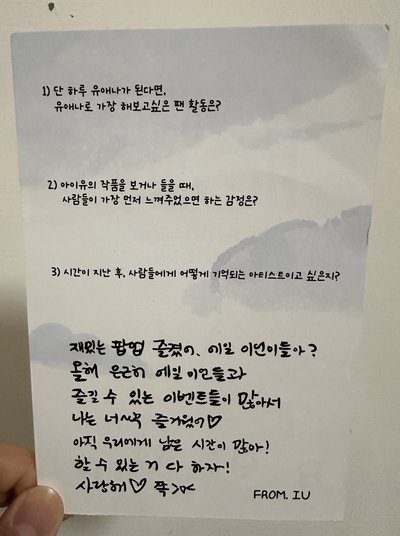 1) 단 하루 유애나가 된다면,
유애나로 가장 해보고싶은 팬 활동은?
2) 아이유의 작품을 보거나 들을 때,
사람들이 가장 먼저 느껴주었으면 하는 감정은?
3) 시간이 지난 후, 사람들에게 어떻게 기억되는 아티스트이고 싶은지?
재밌는 팝업 즐겼어,
올해 은근히
즐길 수 있는 이벤트들이 많아서
나는 너~무 즐거웠어♡
아직 우리에게 남은 시간이 많아!
할 수 있는 거 다 하자!
사랑해♡ 쪽><
FROM. IU